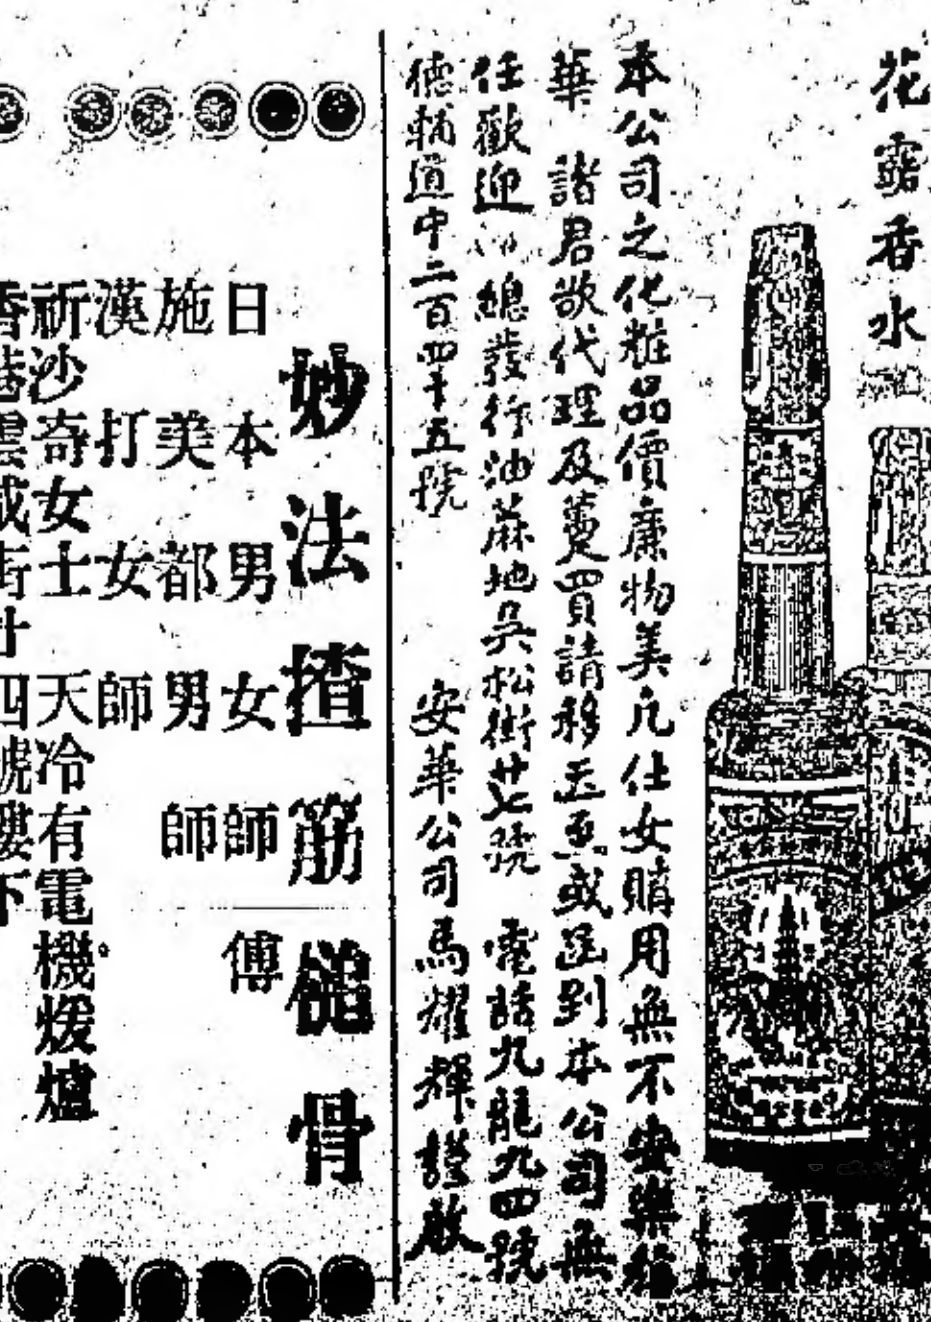 花露香水
本公司之化粧品價廉物美凡仕女購用無不安樂
華　諸君欲代理及躉買請移玉至或函到本公司無
任歡迎　總發行油蔴地吳松街廿七號　電話九龍九四號
德輔道中二百四十五號　安華公司馬耀輝謹啟
妙法揸筋槌骨
日本男女師傅
施美都男師
漢打女師
祈沙奇女士天冷有電機煖爐
香港雲咸街廿四號樓下